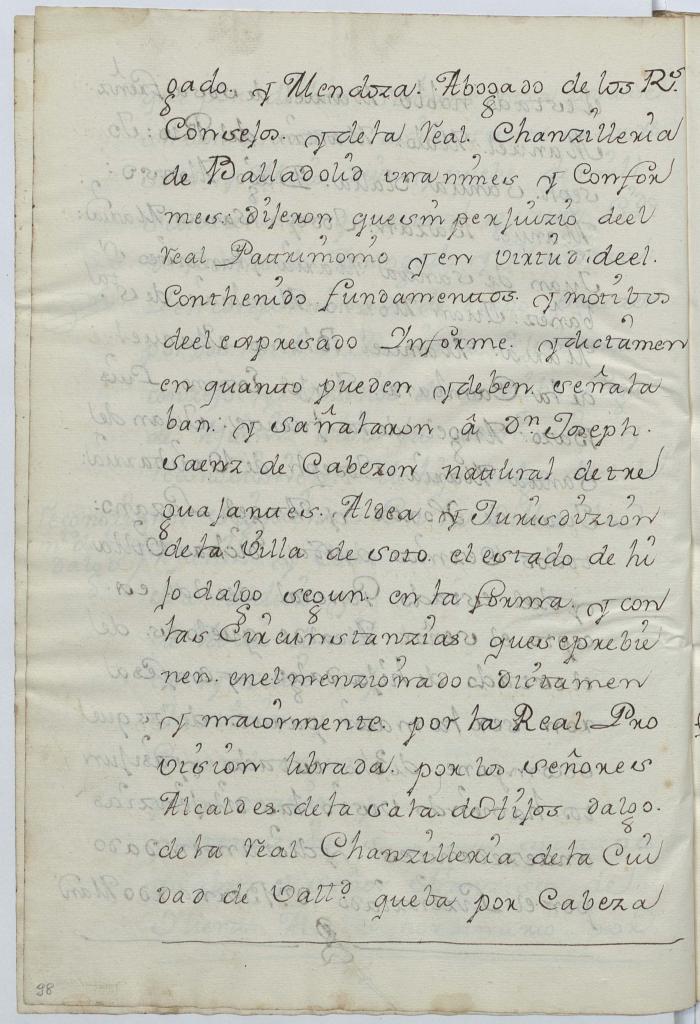 gado. y Mendoza. Abogado de los R.s
Consejos. y de la real. Chanzilleria
de Balladolid unanimes y Confor
mes. dijeron que sin perjuizio deel
real Patrimonio y en virtud. deel.
Conthenido fundamentos. y motibos
deel expresado Informe. y dictamen
en quanto pueden y deben. señala
ban. y sañalaron â Dn Joseph.
saenz de Cabezon natural de tre
guajantes. Aldea y Jurisdizion
de la villa de soto. el estado de hi
jo dalgo segun. en la forma. y con
las Circunstanzias que se prebie
nen. en el menzionado dictamen
y maiormente. por la Real Pro
vision librada. por los señores
Alcaldes de la sala de Hijos dalgo.
de la real Chanzilleria de la Ciu
dad de Valld. que ba por Cabeza
98